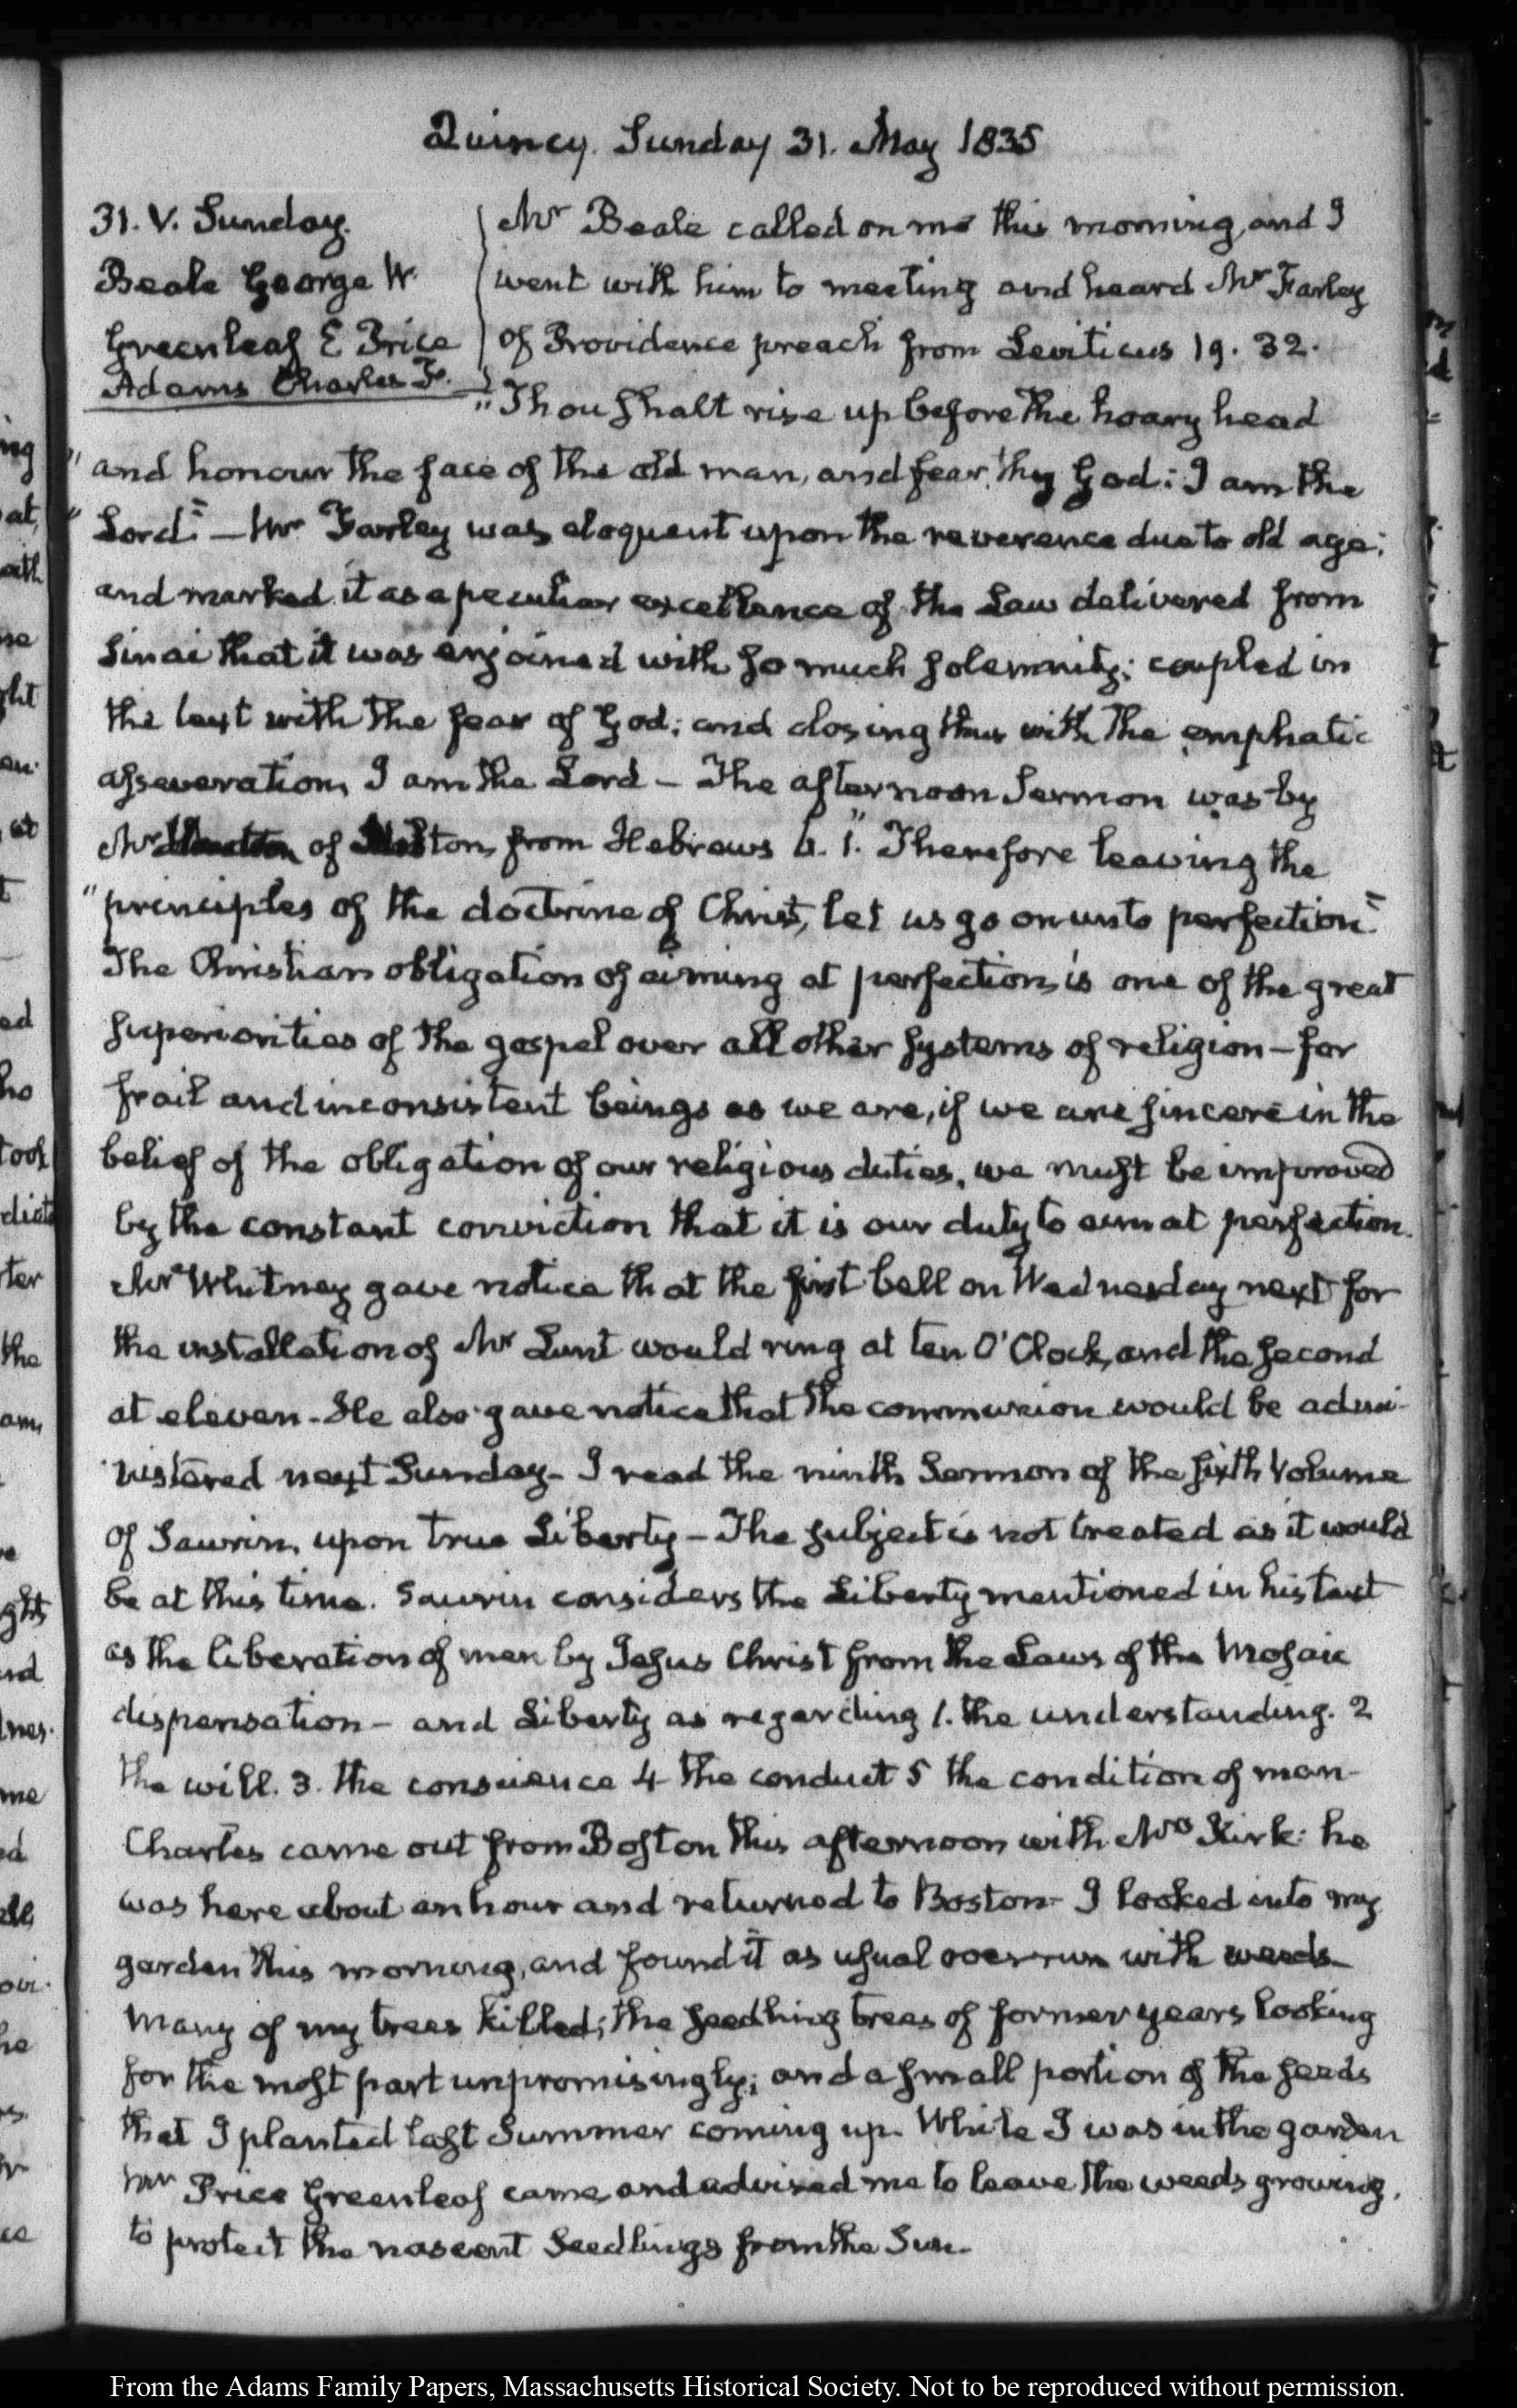 Quincy. Sunday 31. May 1835
31. V. Sunday.
Beale George W.
Greenleaf E Price
Adams Charles F.
Mr Beale called on me this morning, and I
went with him to meeting and heard Mr Farley
of Providence preach from Leviticus 19. 32.
"Thou shalt rise up before the hoary head
"and honour the face of the old man, and fear thy God: I am the
"Lord." — Mr Farley was eloquent upon the reverence due to old age;
and marked it as a peculiar excellence of the Law delivered from
Sinai that it was enjoined with so much solemnity; coupled in
the text with the fear of God; and closing thus with the emphatic
asseveration, I am the Lord — The afternoon Sermon was by
Mr of from Hebrews 6. 1. "Therefore leaving the
"principles of the doctrine of Christ, let us go on unto perfection."
The Christian obligation of aiming at perfection, is one of the great
superiorities of the gospel over all other systems of religion — for
frail and inconsistent beings as we are, if we are sincere in the
belief of the obligation of our religious duties, we must be improved
by the constant conviction that it is our duty to aim at perfection.
Mr Whitney gave notice that the first bell on Wednesday next for
the installation of Mr Lunt would ring at ten O'Clock, and the second
at eleven. He also gave notice that the communion would be admi-
nistered next Sunday. I read the ninth Sermon of the sixth Volume
of Saurin, upon true Liberty — The subject is not treated as it would
be at this time. Saurin considers the Liberty mentioned in his text
as the liberation of man by Jesus Christ from the Laws of the Mosaic
dispensation — and Liberty as regarding 1. the understanding. 2
the will. 3. the conscience 4 the conduct 5 the condition of man —
Charles came out from Boston this afternoon with Mrs Kirk: he
was here about an hour and returned to Boston — I looked into my
garden this morning, and found it as usual overrun with weeds —
many of my trees killed; the seedling trees of former years looking
for the most part unpromisingly; and a small portion of the seeds
that I planted last Summer coming up. While I was in the garden
Mr Price Greenleaf came and advised me to leave the weeds growing,
to protect the nascent seedlings from the Sun.
From the Adams Family Papers, Massachusetts Historical Society. Not to be reproduced without permission.